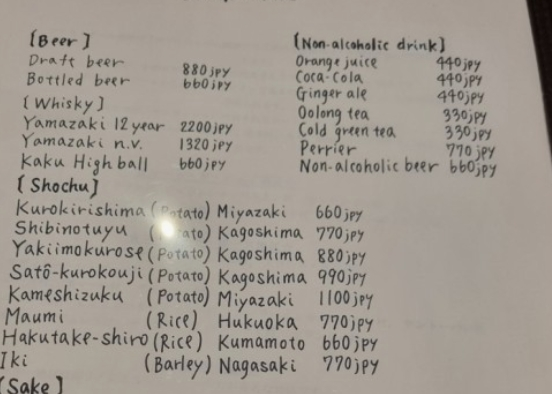 [Beer]
Draft beer 880jpy
Bottled beer 660jpy
[Whisky]
Yamazaki 12year 2200jpy
Yamazaki n.v. 1320jpy
Kaku Highball 660jpy
[Non-alcoholic drink]
Orange juice 440jpy
Coca-Cola 440jpy
Ginger ale 440jpy
Oolong tea 330jpy
Cold green tea 330jpy
Perrier 770jpy
Non-alcoholic beer 660jpy
[Shochu]
Kurokirishima (Potato) Miyazaki 660jpy
Shibinotuyu (Potato) Kagoshima 770jpy
Yakiimokurose (Potato) Kagoshima 880jpy
Satô-kurokouji (Potato) Kagoshima 990jpy
Kameshizuku (Potato) Miyazaki 1100jpy
Maumi (Rice) Hukuoka 770jpy
Hakutake-shiro (Rice) Kumamoto 660jpy
Iki (Barley) Nagasaki 770jpy
[Sake]